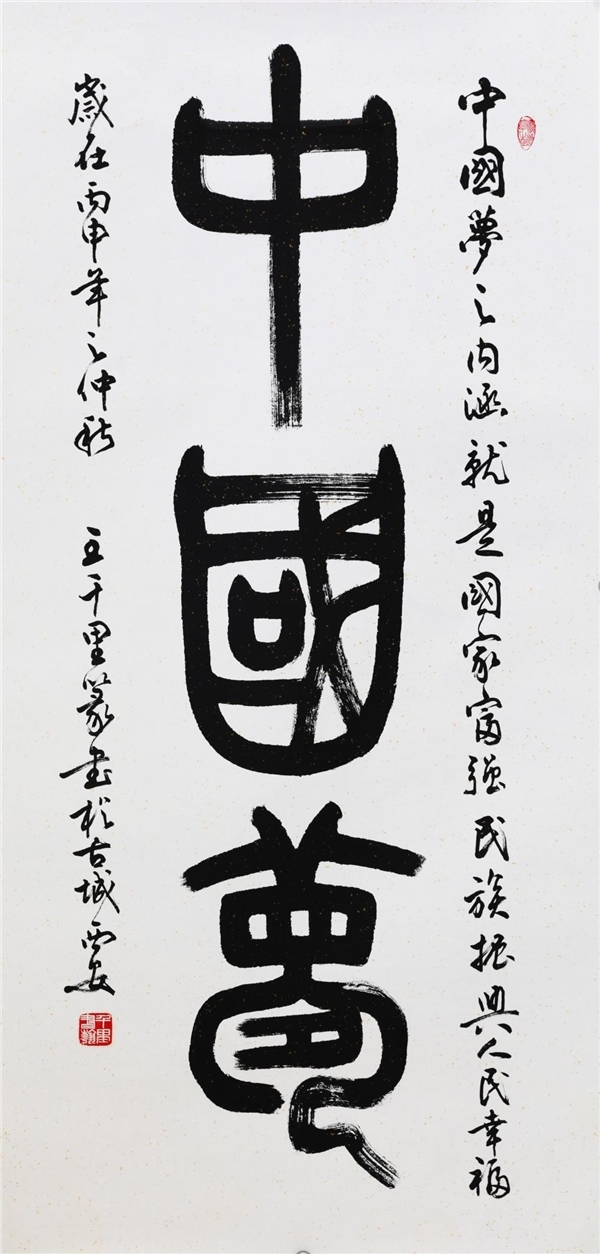 中國夢之内涵就是國家富强民族振興人民幸福
中國夢
歲在丙申年之仲秋 王千里篆書於古城西安